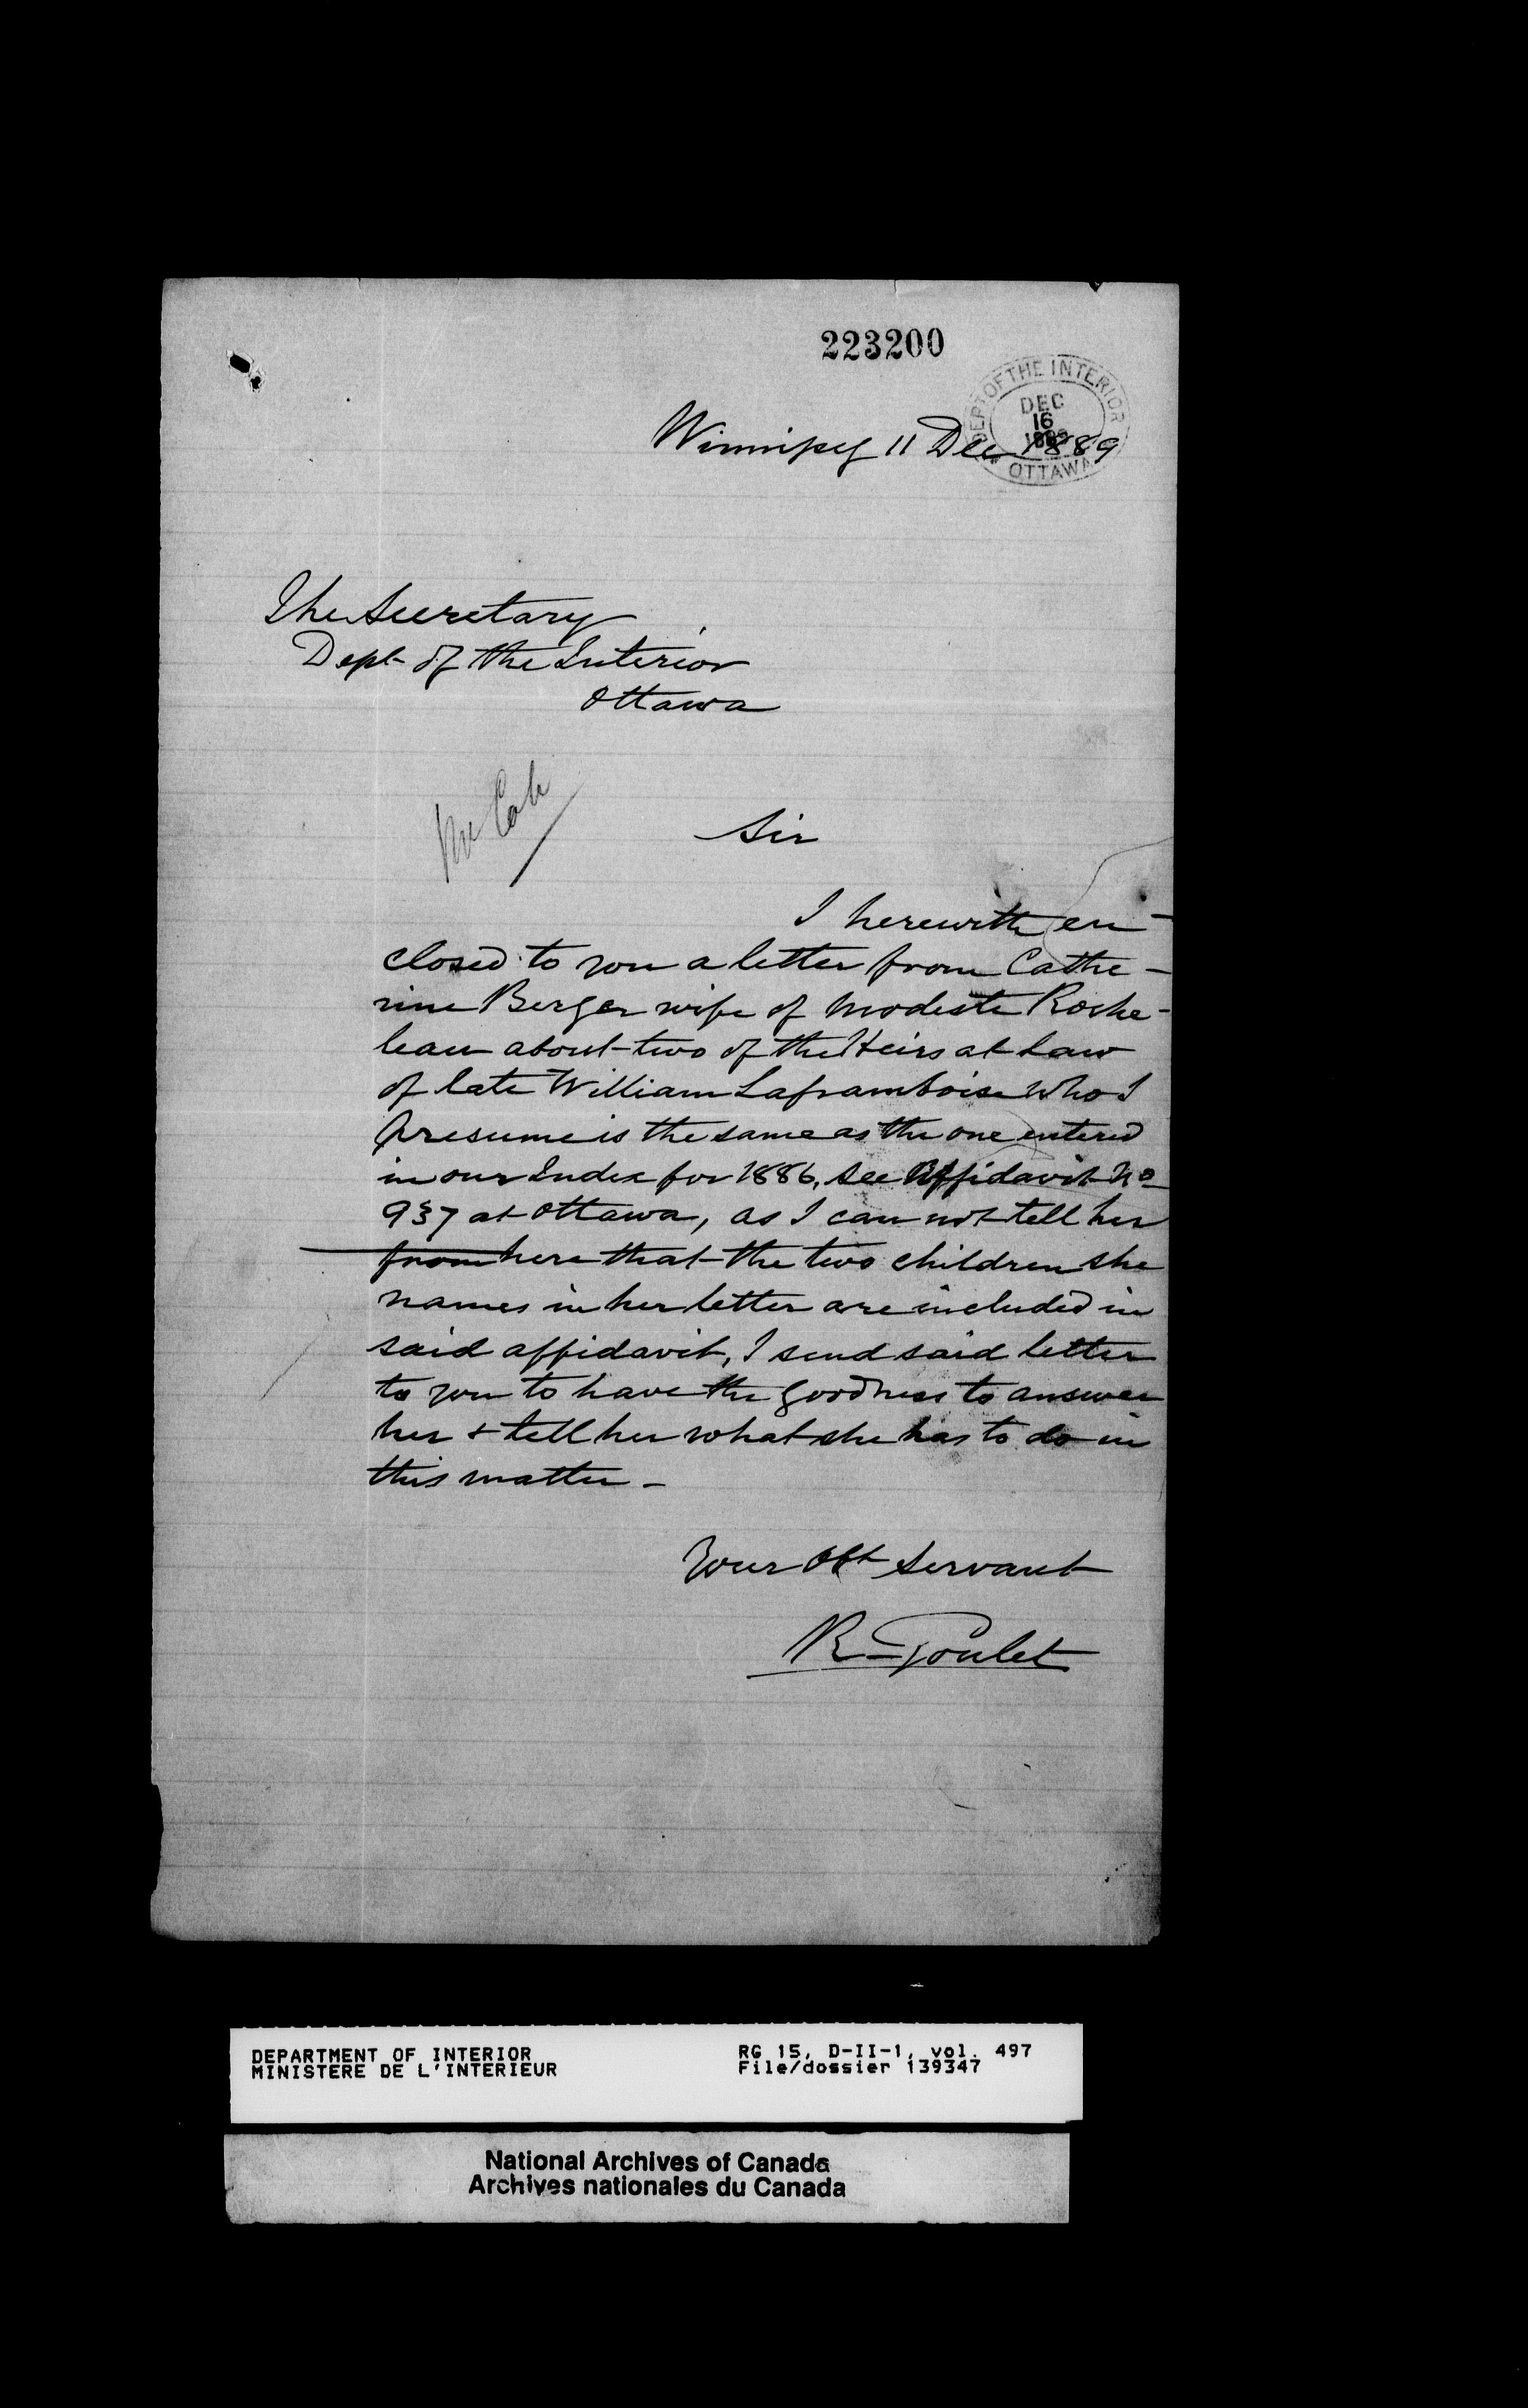 223200
DEPT OF THE INTERIOR
DEC
16
1889
OTTAWA
Winnipeg 11 Dec 1889
The Secretary
Dept of the Interior
Ottawa
Sir
I herewith en-
closed to you a letter from Cathe-
rine Berger wife of Modeste Roche-
leau about two of the Heirs at Law
of late William Laframboise who I
presume is the same as the one entered
in our Index for 1886, see Affidavit No
937 at Ottawa, as I can not tell her
from here that the two children she
names in her letter are included in
said affidavit, I send said letter
to you to have the goodness to answer
her & tell her what she has to do in
this matter -
Your Obt Servant
R Goulet
DEPARTMENT OF INTERIOR
MINISTERE DE L'INTERIEUR
RG 15, D-II-1, vol. 497
File/dossier 139347
National Archives of Canada
Archives nationales du Canada